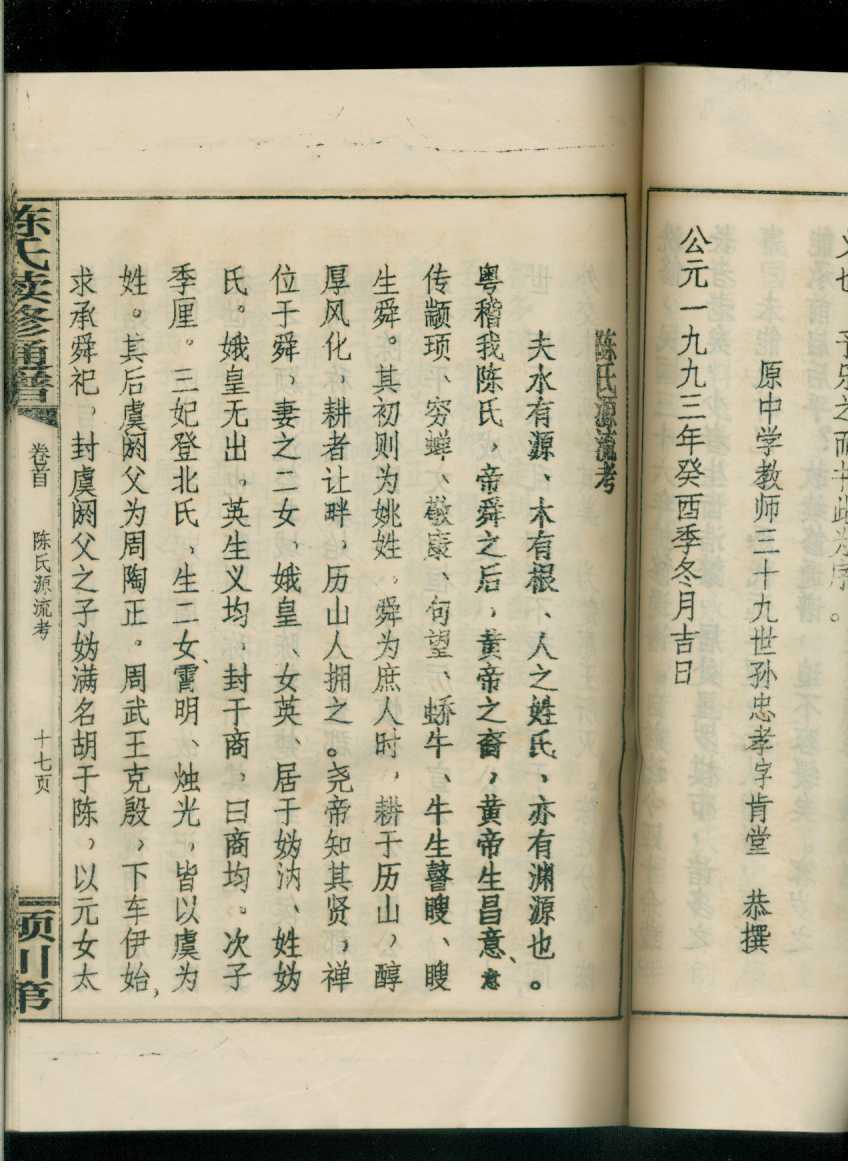 公元一九九三年癸酉季冬月吉日
原中学教师三十九世孙忠孝字肯堂 恭撰
陈氏源流考
夫水有源、木有根、人之姓氏，亦有渊源也。
粤稽我陈氏，帝舜之后，黄帝之裔，黄帝生昌意、意
传颛顼、穷蝉、敬康、句望、蟜牛、牛生瞽瞍、瞍
生舜。其初则为姚姓。舜为庶人时，耕于历山，醇
厚风化，耕者让畔，历山人拥之。尧帝知其贤，禅
位于舜，妻之二女、娥皇、女英、居于妫汭、姓妫
氏。娥皇无出。英生义均，封于商，曰商均。次子
季厘。三妃登北氏、生二女、霄明、烛光，皆以虞为
姓。其后虞阏父为周陶正。周武王克殷，下车伊始，
求承舜祀，封虞阏父之子妫满名胡于陈，以元女太
陈氏续修通谱
卷首 陈氏源流考 十七页
颍川第